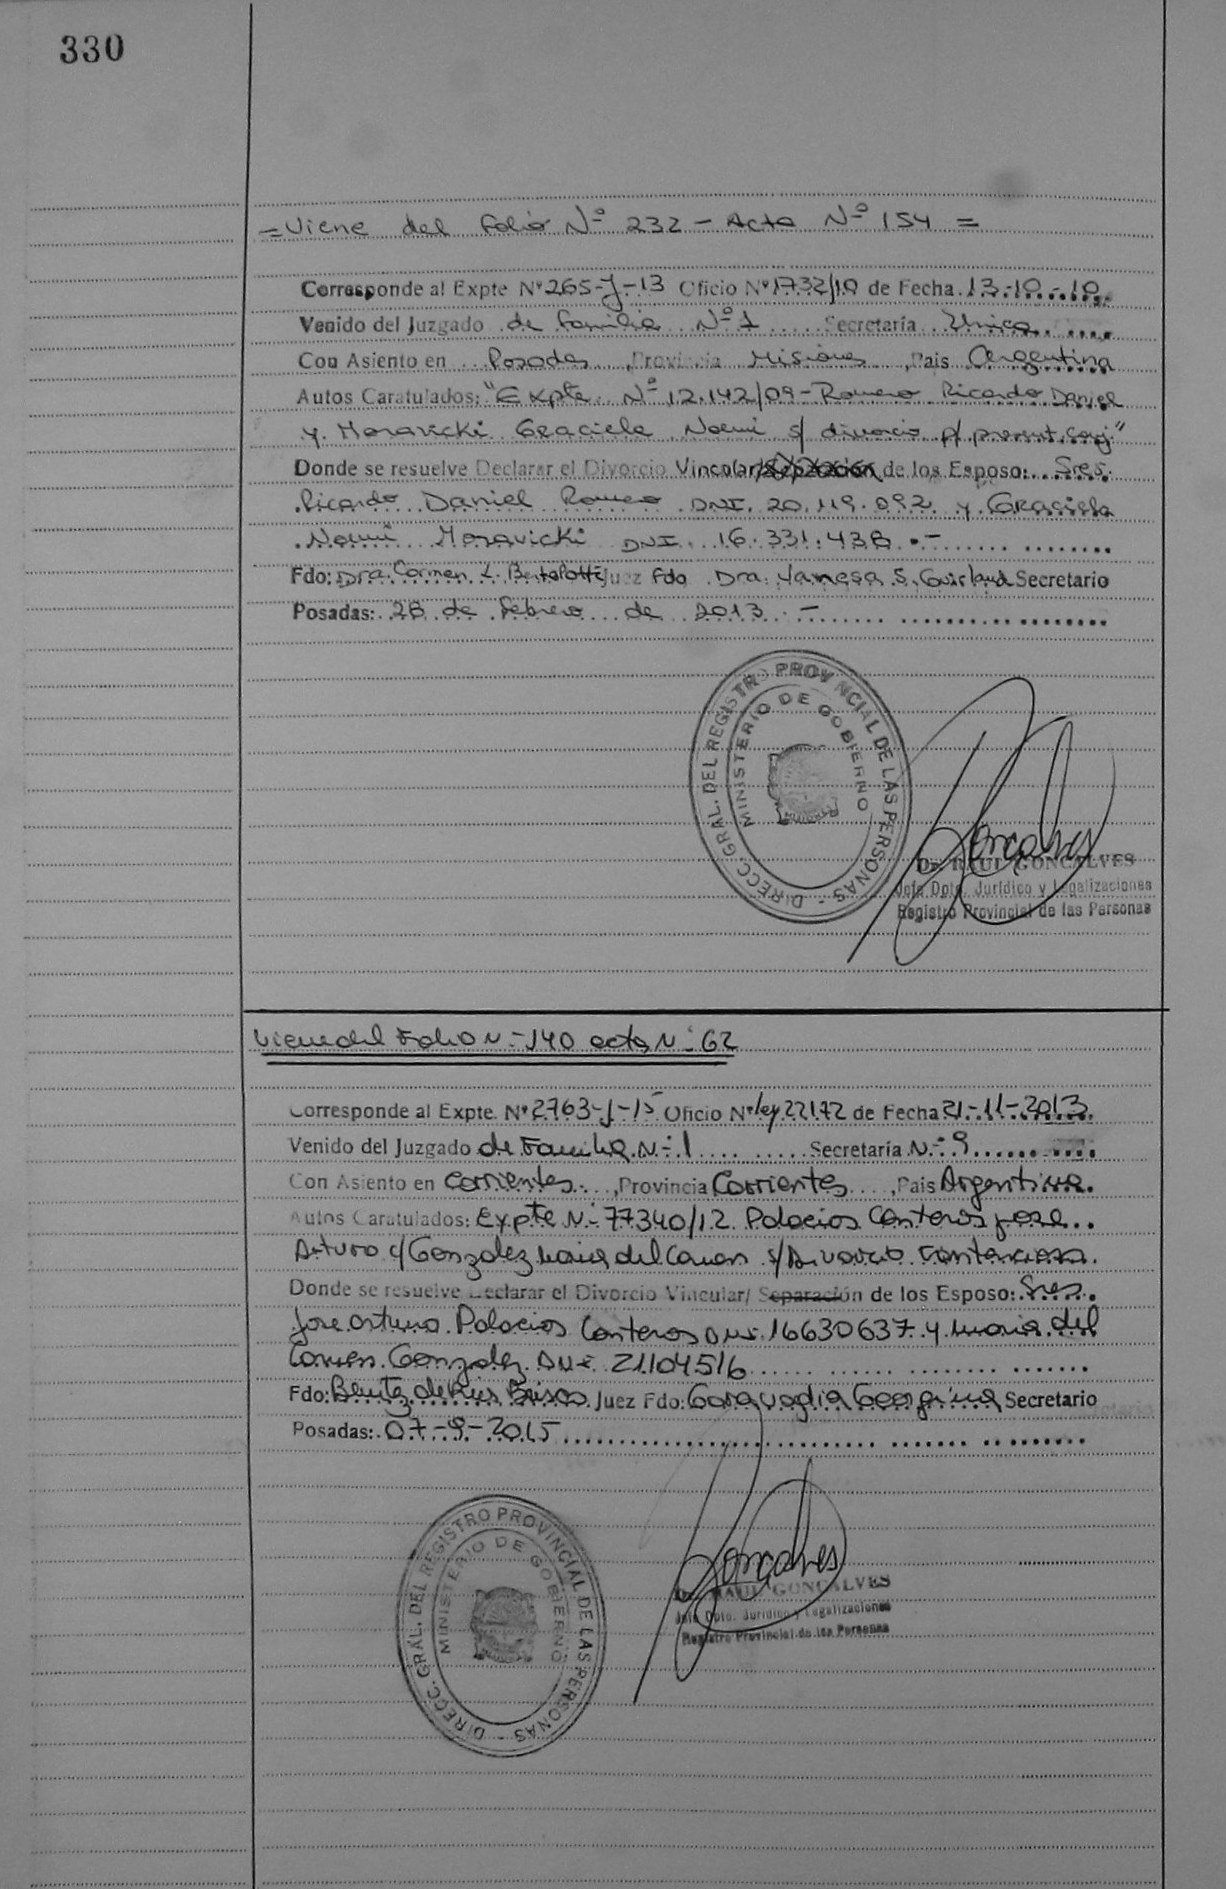 330
= Viene del Folio Nº 232 - Acta Nº 154 =
Corresponde al Expte Nº 265-J-13 Oficio Nº 1732/10 de Fecha 13-10-10
Venido del Juzgado de Familia Nº 1 Secretaría Unica
Con Asiento en Posadas, Provincia Misiones, Pais Argentina
Autos Caratulados: "Expte. Nº 12.142/09 - Romero Ricardo Daniel
y Moravicki Graciela Noemi s/ divorcio p/ present. conj"
Donde se resuelve Declarar el Divorcio Vincular/Separación de los Esposo: Sres.
Ricardo Daniel Romero DNI. 20.119.092 y Graciela
Noemi Moravicki DNI. 16.331.438.-
Fdo: Dra. Carmen L. Bertolotti Juez Fdo Dra. Vanesa S. Secretario
Posadas: 28 de Febrero de 2013.-
DIRECC. GRAL. DEL REGISTRO PROVINCIAL DE LAS PERSONAS -
MINISTERIO DE GOBIERNO
Goncalves
Dr. RAUL GONCALVES
Jefe Dpto. Jurídico y Legalizaciones
Registro Provincial de las Personas
Viene del Folio N- 140 acta N- 62
Corresponde al Expte. Nº 2763-J-15 Oficio Nº ley 22172 de Fecha 21-11-2013
Venido del Juzgado de Familia N- 1 Secretaría N- 9
Con Asiento en Corrientes, Provincia Corrientes, Pais Argentina.
Autos Caratulados: Expte N- 77340/12. Palacios Canteros Jose
Arturo c/ Gonzalez Maria del Carmen s/ Divorcio Contencioso.
Donde se resuelve Declarar el Divorcio Vincular/ Separación de los Esposo: Sres.
Jose Arturo Palacios Canteros DNI. 16630637 y Maria del
Carmen Gonzalez DNI 21104516
Fdo: Benitez de Rios Brisco Juez Fdo: Garavaglia Georgina Secretario
Posadas: 07-9-2015
DIRECC. GRAL. DEL REGISTRO PROVINCIAL DE LAS PERSONAS -
MINISTERIO DE GOBIERNO
Goncalves
Dr. RAUL GONCALVES
Jefe Dpto. Jurídico y Legalizaciones
Registro Provincial de las Personas